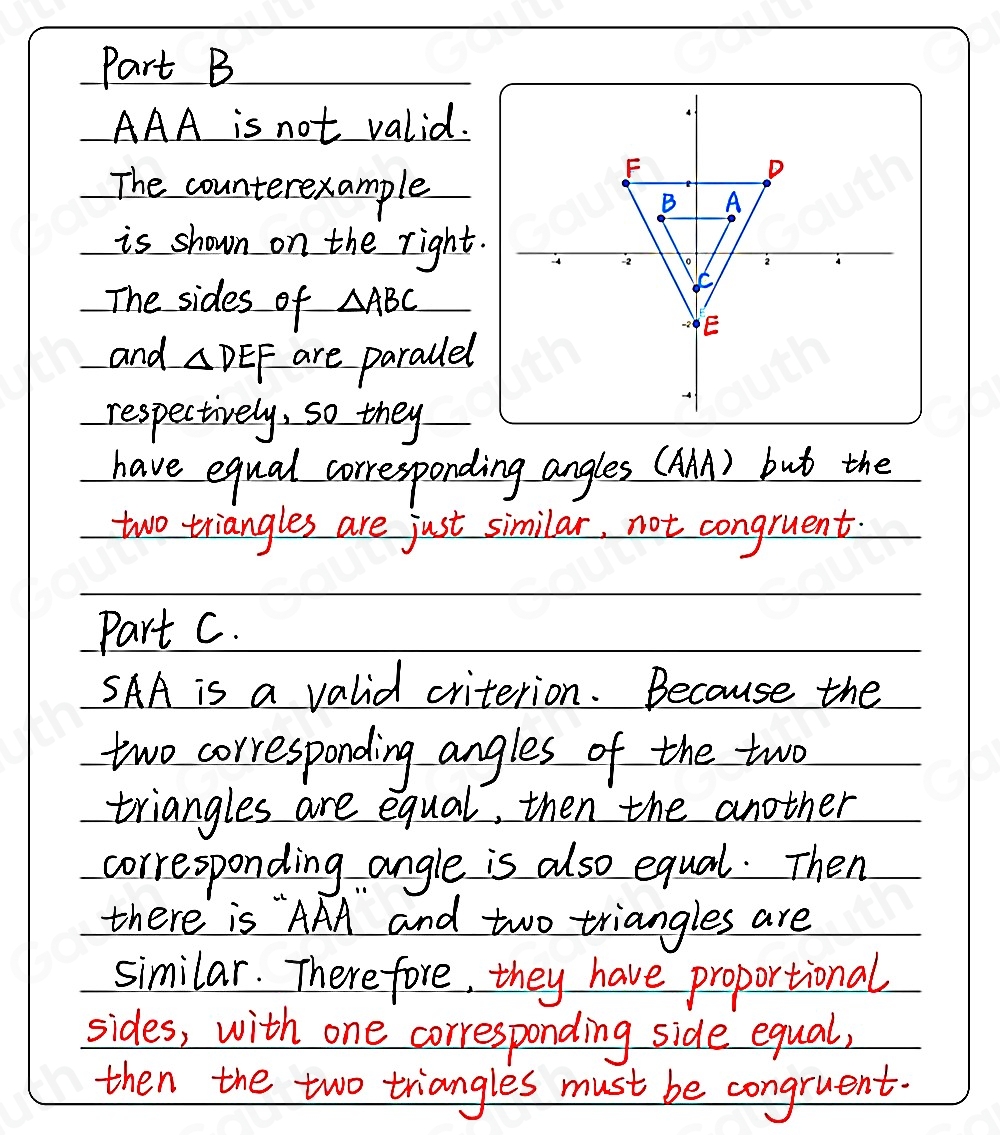 Part B
AAA is not valid.
The counterexample
is shown on the right.
The sides of △ABC
and △DEF are parallel
respectively, so they
have equal corresponding angles (AAA) but the
two triangles are just similar, not congruent.
4
F
D
2
B
A
-4
-2
0
2
4
C
E
-2
E
-4
Part C.
SAA is a valid criterion. Because the
two corresponding angles of the two
triangles are equal, then the another
corresponding angle is also equal. Then
there is "AAA" and two triangles are
similar. Therefore, they have proportional
sides, with one corresponding side equal,
then the two triangles must be congruent.
Gauth